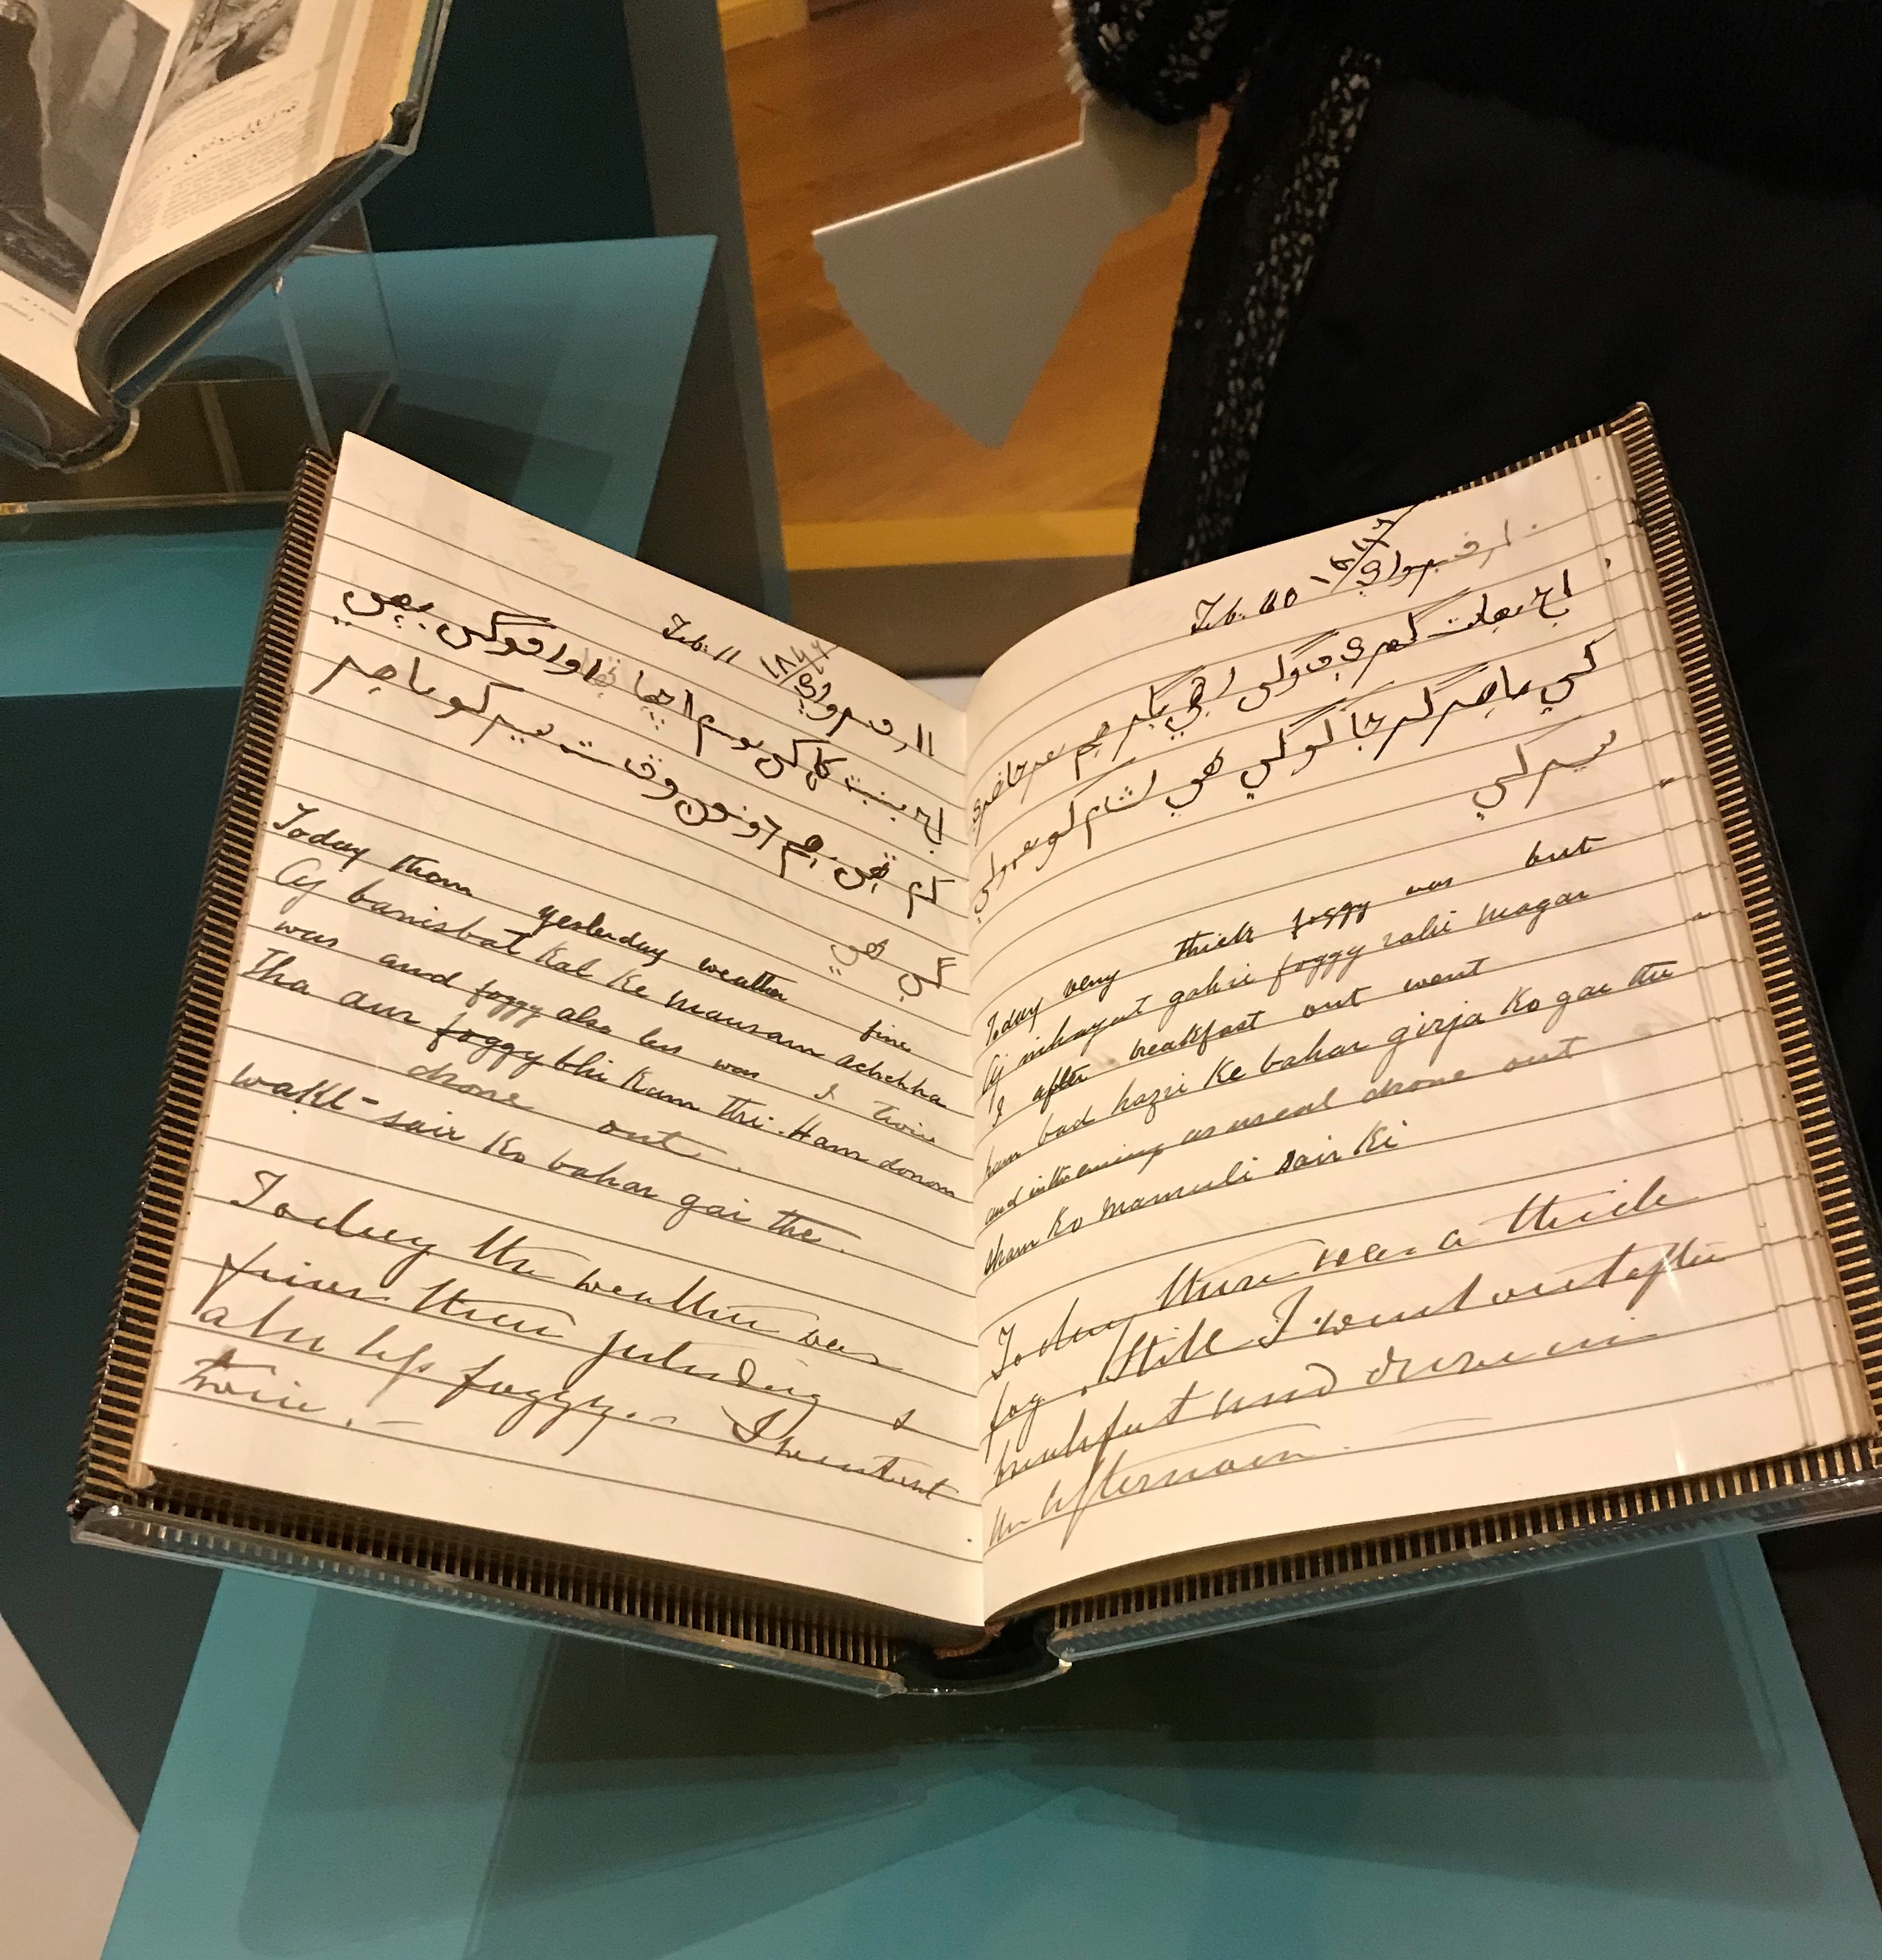 Feb. 10
اج نہایت گہری فوگی رہی مگر ہم بعد حاضری
کی باہر گرجا کو گی تھی شام کو معمولی
سیر کی
Today very thick foggy was but
Aj nihayat gahri foggy rahi magar
I after breakfast out went
ham bad hazri ke bahar girja ko gae the
and in the evening as usual drove out
sham ko mamuli sair ki
Today there was a thick
fog. Still I went out after
breakfast and drove in
the afternoon.
Feb. 11
اج بنسبت کل کی موسم اچھا تھا اور فوگی بھی
کم تھی ہم دونون وقت سیر کو باہر
گی تھی
Today than yesterday weather fine
Aj banisbat kal ke mausam achchha
was and foggy also less was I twice
tha aur foggy bhi kam thi. Ham donon
drove out.
wakt-sair ko bahar gai the.
Today the weather was
finer than yesterday &
also less foggy. – I went out
twice. –